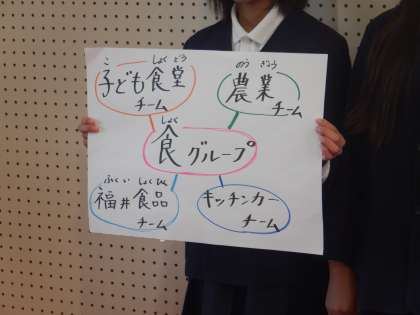 こ しょくどう
子ども食堂
チーム
のう ぎょう
農業
チーム
しょく
食グループ
ふくい しょくひん
福井食品
チーム
キッチンカー
チーム